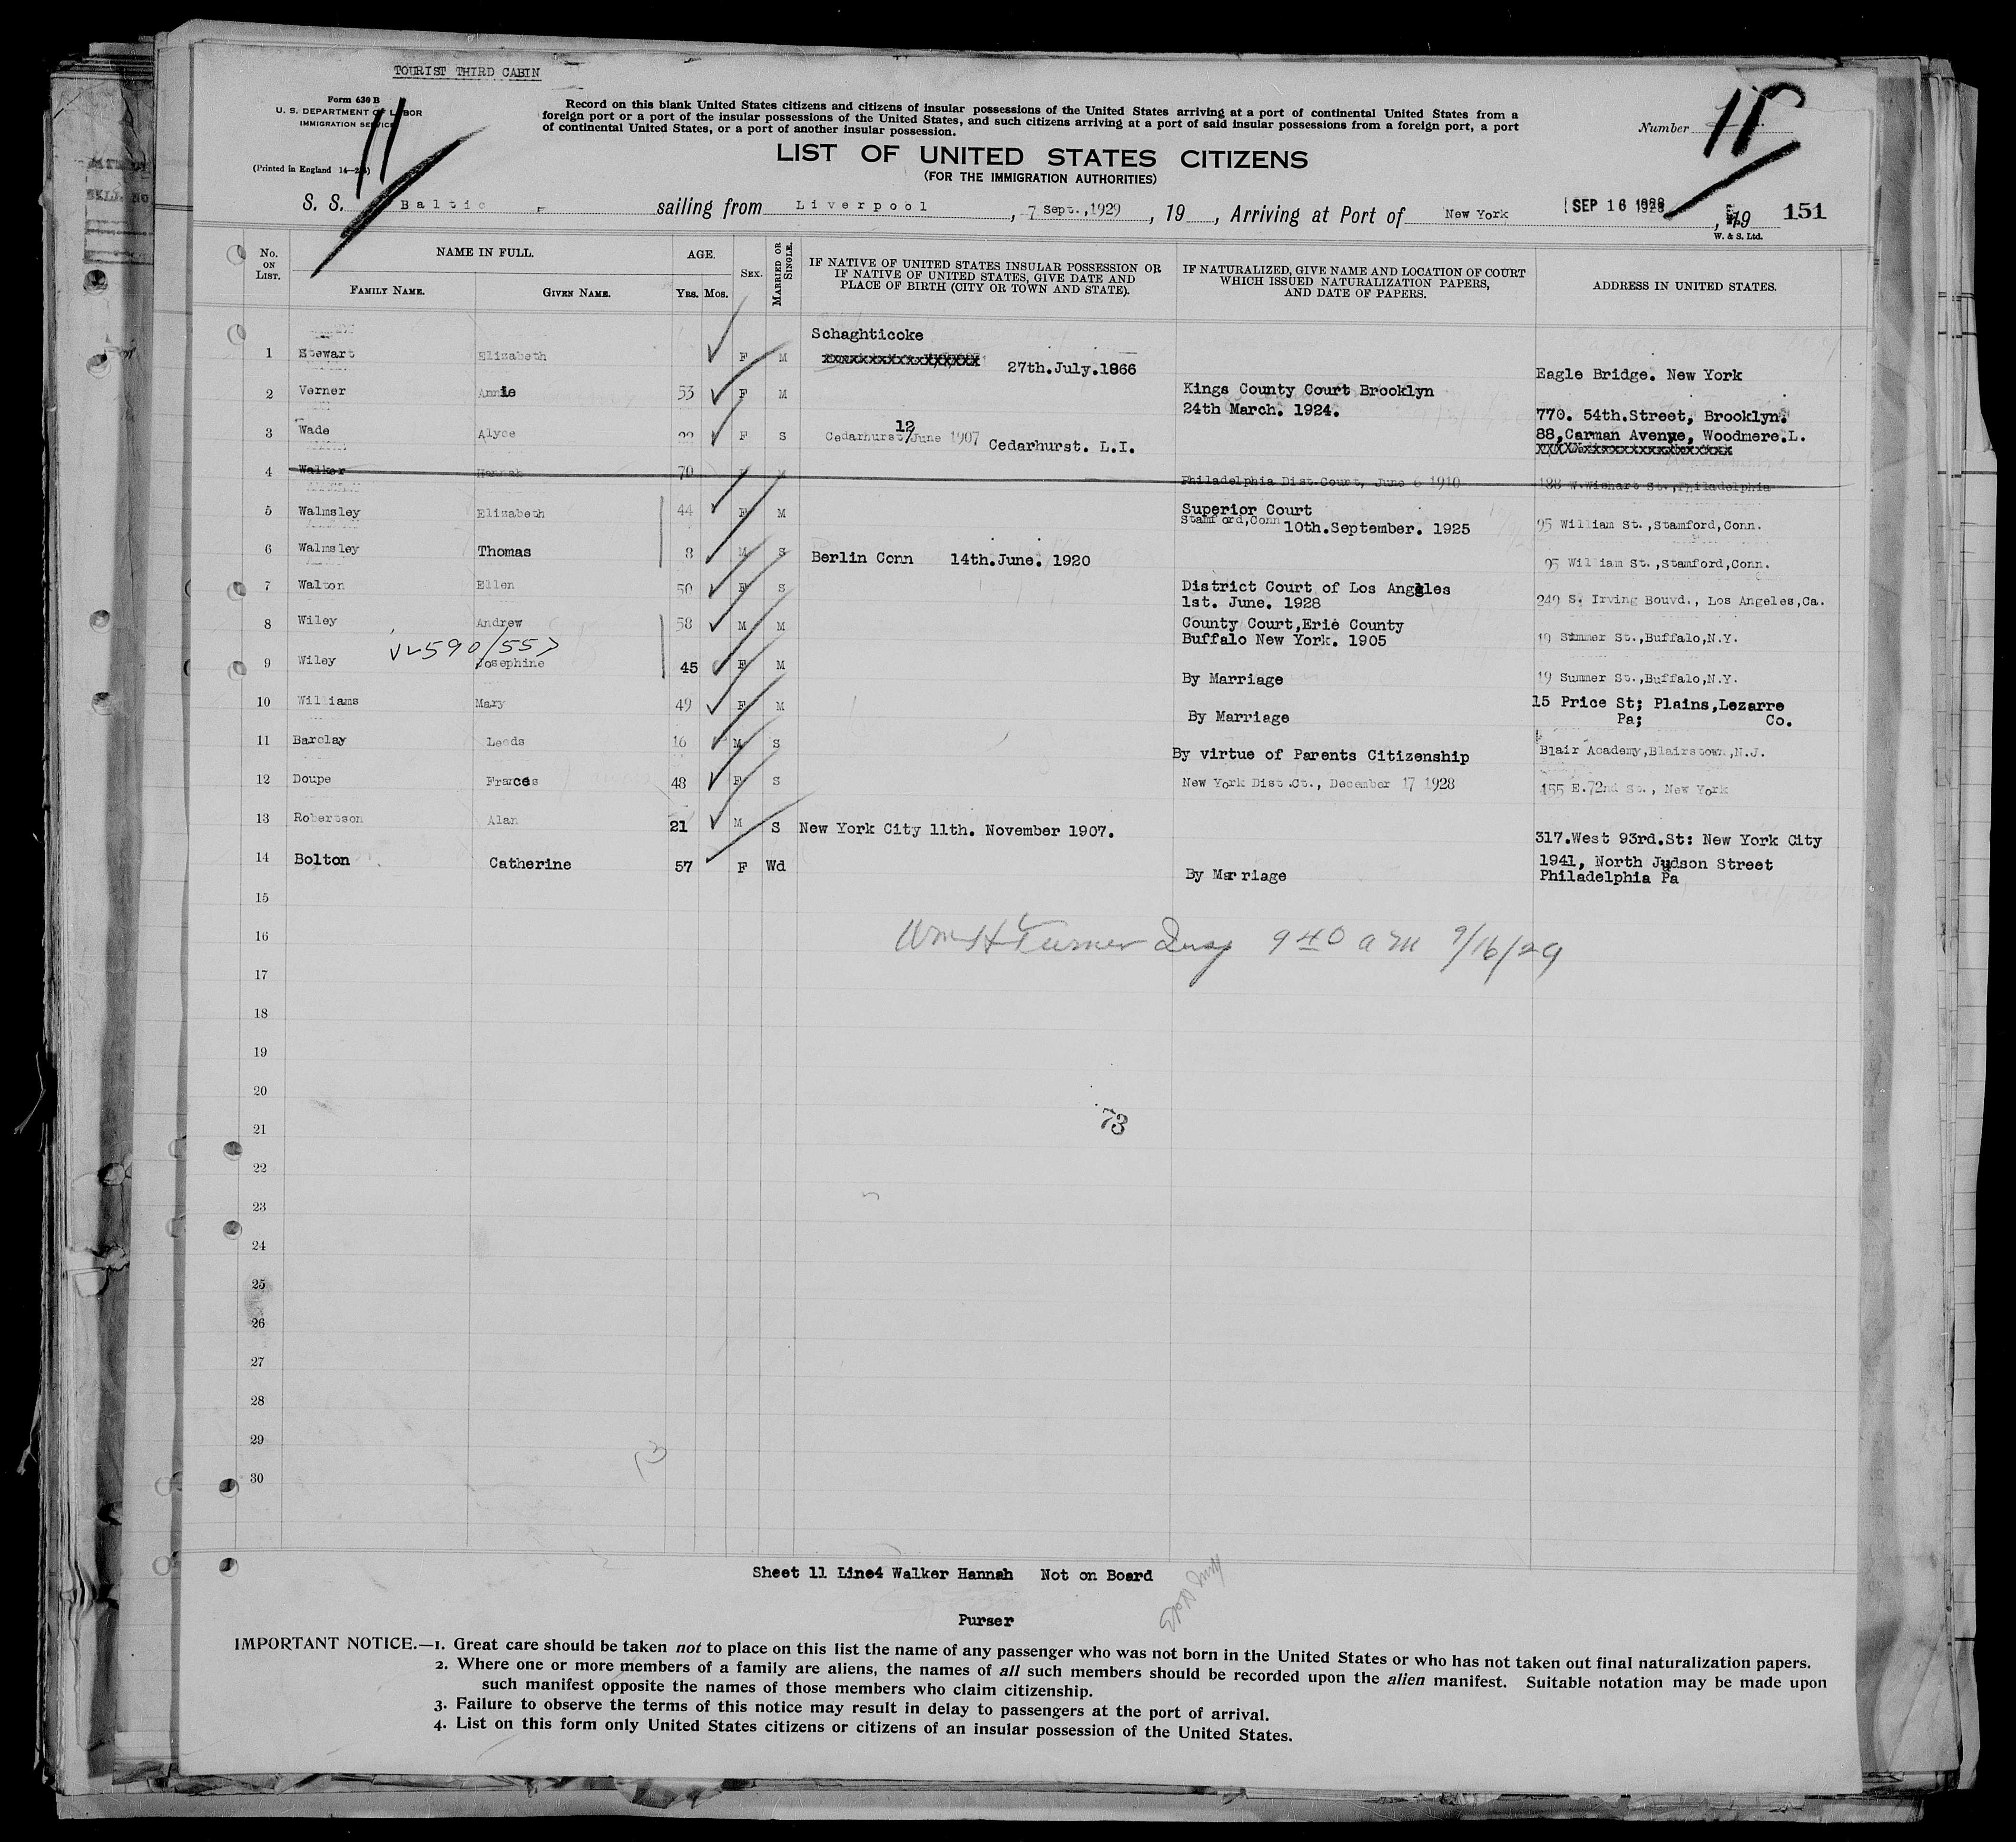 TOURIST THIRD CABIN
Form 630 B
U. S. DEPARTMENT OF LABOR
IMMIGRATION SERVICE
(Printed in England 14-
11
Record on this blank United States citizens and citizens of insular possessions of the United States arriving at a port of continental United States from a
foreign port or a port of the insular possessions of the United States, and such citizens arriving at a port of said insular possessions from a foreign port, a port
of continental United States, or a port of another insular possession.
Number 11
LIST OF UNITED STATES CITIZENS
(FOR THE IMMIGRATION AUTHORITIES)
S. S. Baltic sailing from Liverpool, 7 Sept.,1929, 19, Arriving at Port of New York SEP 16, 19 151
W. & S. Ltd.
No. ON LIST. NAME IN FULL. FAMILY NAME. GIVEN NAME. AGE. YRS. MOS. SEX. MARRIED OR SINGLE. IF NATIVE OF UNITED STATES INSULAR POSSESSION OR IF NATIVE OF UNITED STATES, GIVE DATE AND PLACE OF BIRTH (CITY OR TOWN AND STATE). IF NATURALIZED, GIVE NAME AND LOCATION OF COURT WHICH ISSUED NATURALIZATION PAPERS, AND DATE OF PAPERS. ADDRESS IN UNITED STATES.
1 Stewart Elizabeth F M Schaghticoke 27th.July.1866 Eagle Bridge. New York
2 Verner Annie 53 F M Kings County Court Brooklyn 24th March. 1924. 770. 54th.Street, Brooklyn.
3 Wade Alyce 22 F S Cedarhurst 12/June 1907 Cedarhurst. L.I. 88,Carman Avenue, Woodmere.L.
4 Walker Hannah 70 Philadelphia Dist.Court, June 6 1910 188 W.Wishart St.,Philadelphia
5 Walmsley Elizabeth 44 F M Superior Court Stamford,Conn 10th.September. 1925 95 William St.,Stamford,Conn.
6 Walmsley Thomas 8 M S Berlin Conn 14th.June. 1920 95 William St.,Stamford,Conn.
7 Walton Ellen 50 F S District Court of Los Angeles 1st. June. 1928 249 S. Irving Bouvd., Los Angeles,Ca.
8 Wiley Andrew 58 M M County Court,Erie County Buffalo New York. 1905 19 Summer St.,Buffalo,N.Y.
590/557
9 Wiley Josephine 45 F M By Marriage 19 Summer St.,Buffalo,N.Y.
10 Williams Mary 49 F M By Marriage 15 Price St; Plains,Lezarre Pa; Co.
11 Barclay Leeds 16 M S By virtue of Parents Citizenship Blair Academy,Blairstown,N.J.
12 Doupe Frances 48 F S New York Dist.Ct., December 17 1928 455 E.72nd St., New York
13 Robertson Alan 21 M S New York City 11th. November 1907. 317.West 93rd.St: New York City
14 Bolton Catherine 57 F Wd By Marriage 1941, North Judson Street Philadelphia Pa
15
16 Wm H Turner Insp 940 a m 9/16/29
17
18
19
20
21 73
22
23
24
25
26
27
28
29
30
Sheet 11 Line4 Walker Hannah Not on Board
Purser
IMPORTANT NOTICE.—1. Great care should be taken not to place on this list the name of any passenger who was not born in the United States or who has not taken out final naturalization papers.
2. Where one or more members of a family are aliens, the names of all such members should be recorded upon the alien manifest. Suitable notation may be made upon
such manifest opposite the names of those members who claim citizenship.
3. Failure to observe the terms of this notice may result in delay to passengers at the port of arrival.
4. List on this form only United States citizens or citizens of an insular possession of the United States.